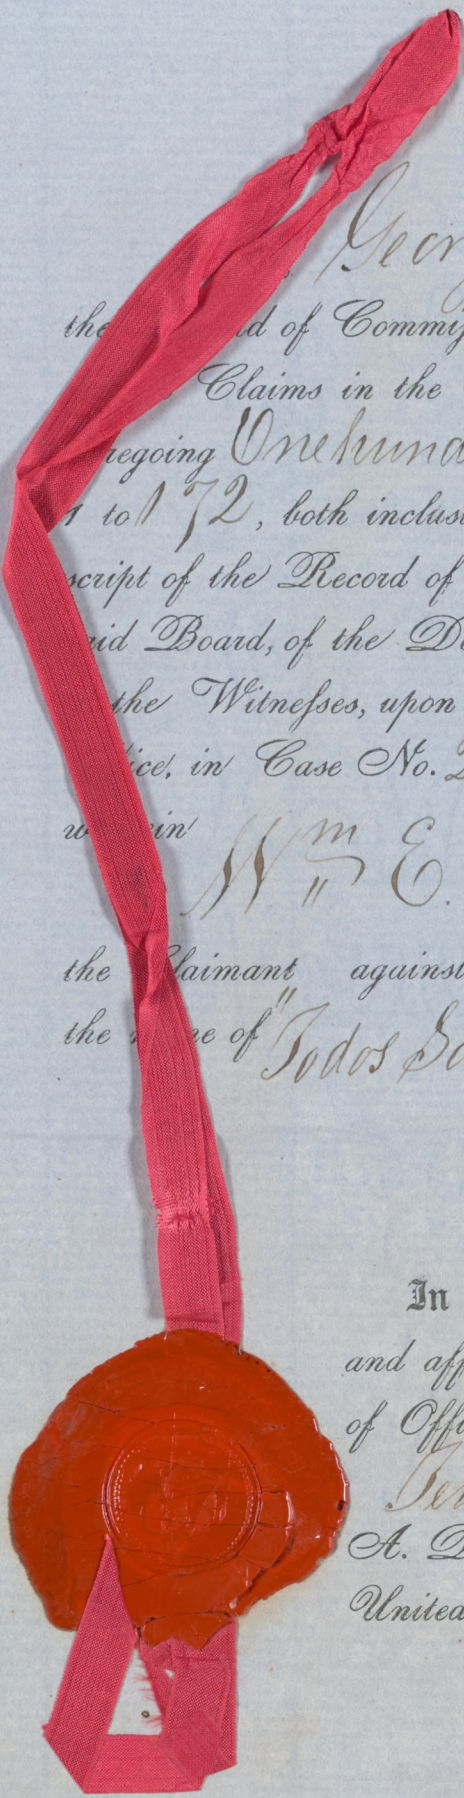 Geor
the d of Commiſ
Claims in the
regoing One hund
1 to 172, both inclus
script of the Record of
aid Board, of the De
the Witneſses, upon
ice, in Case No. 2
w in
Wm E.
the laimant against
the e of "Todos Sa
In
and aff
of Offi
Ter
A. D
United